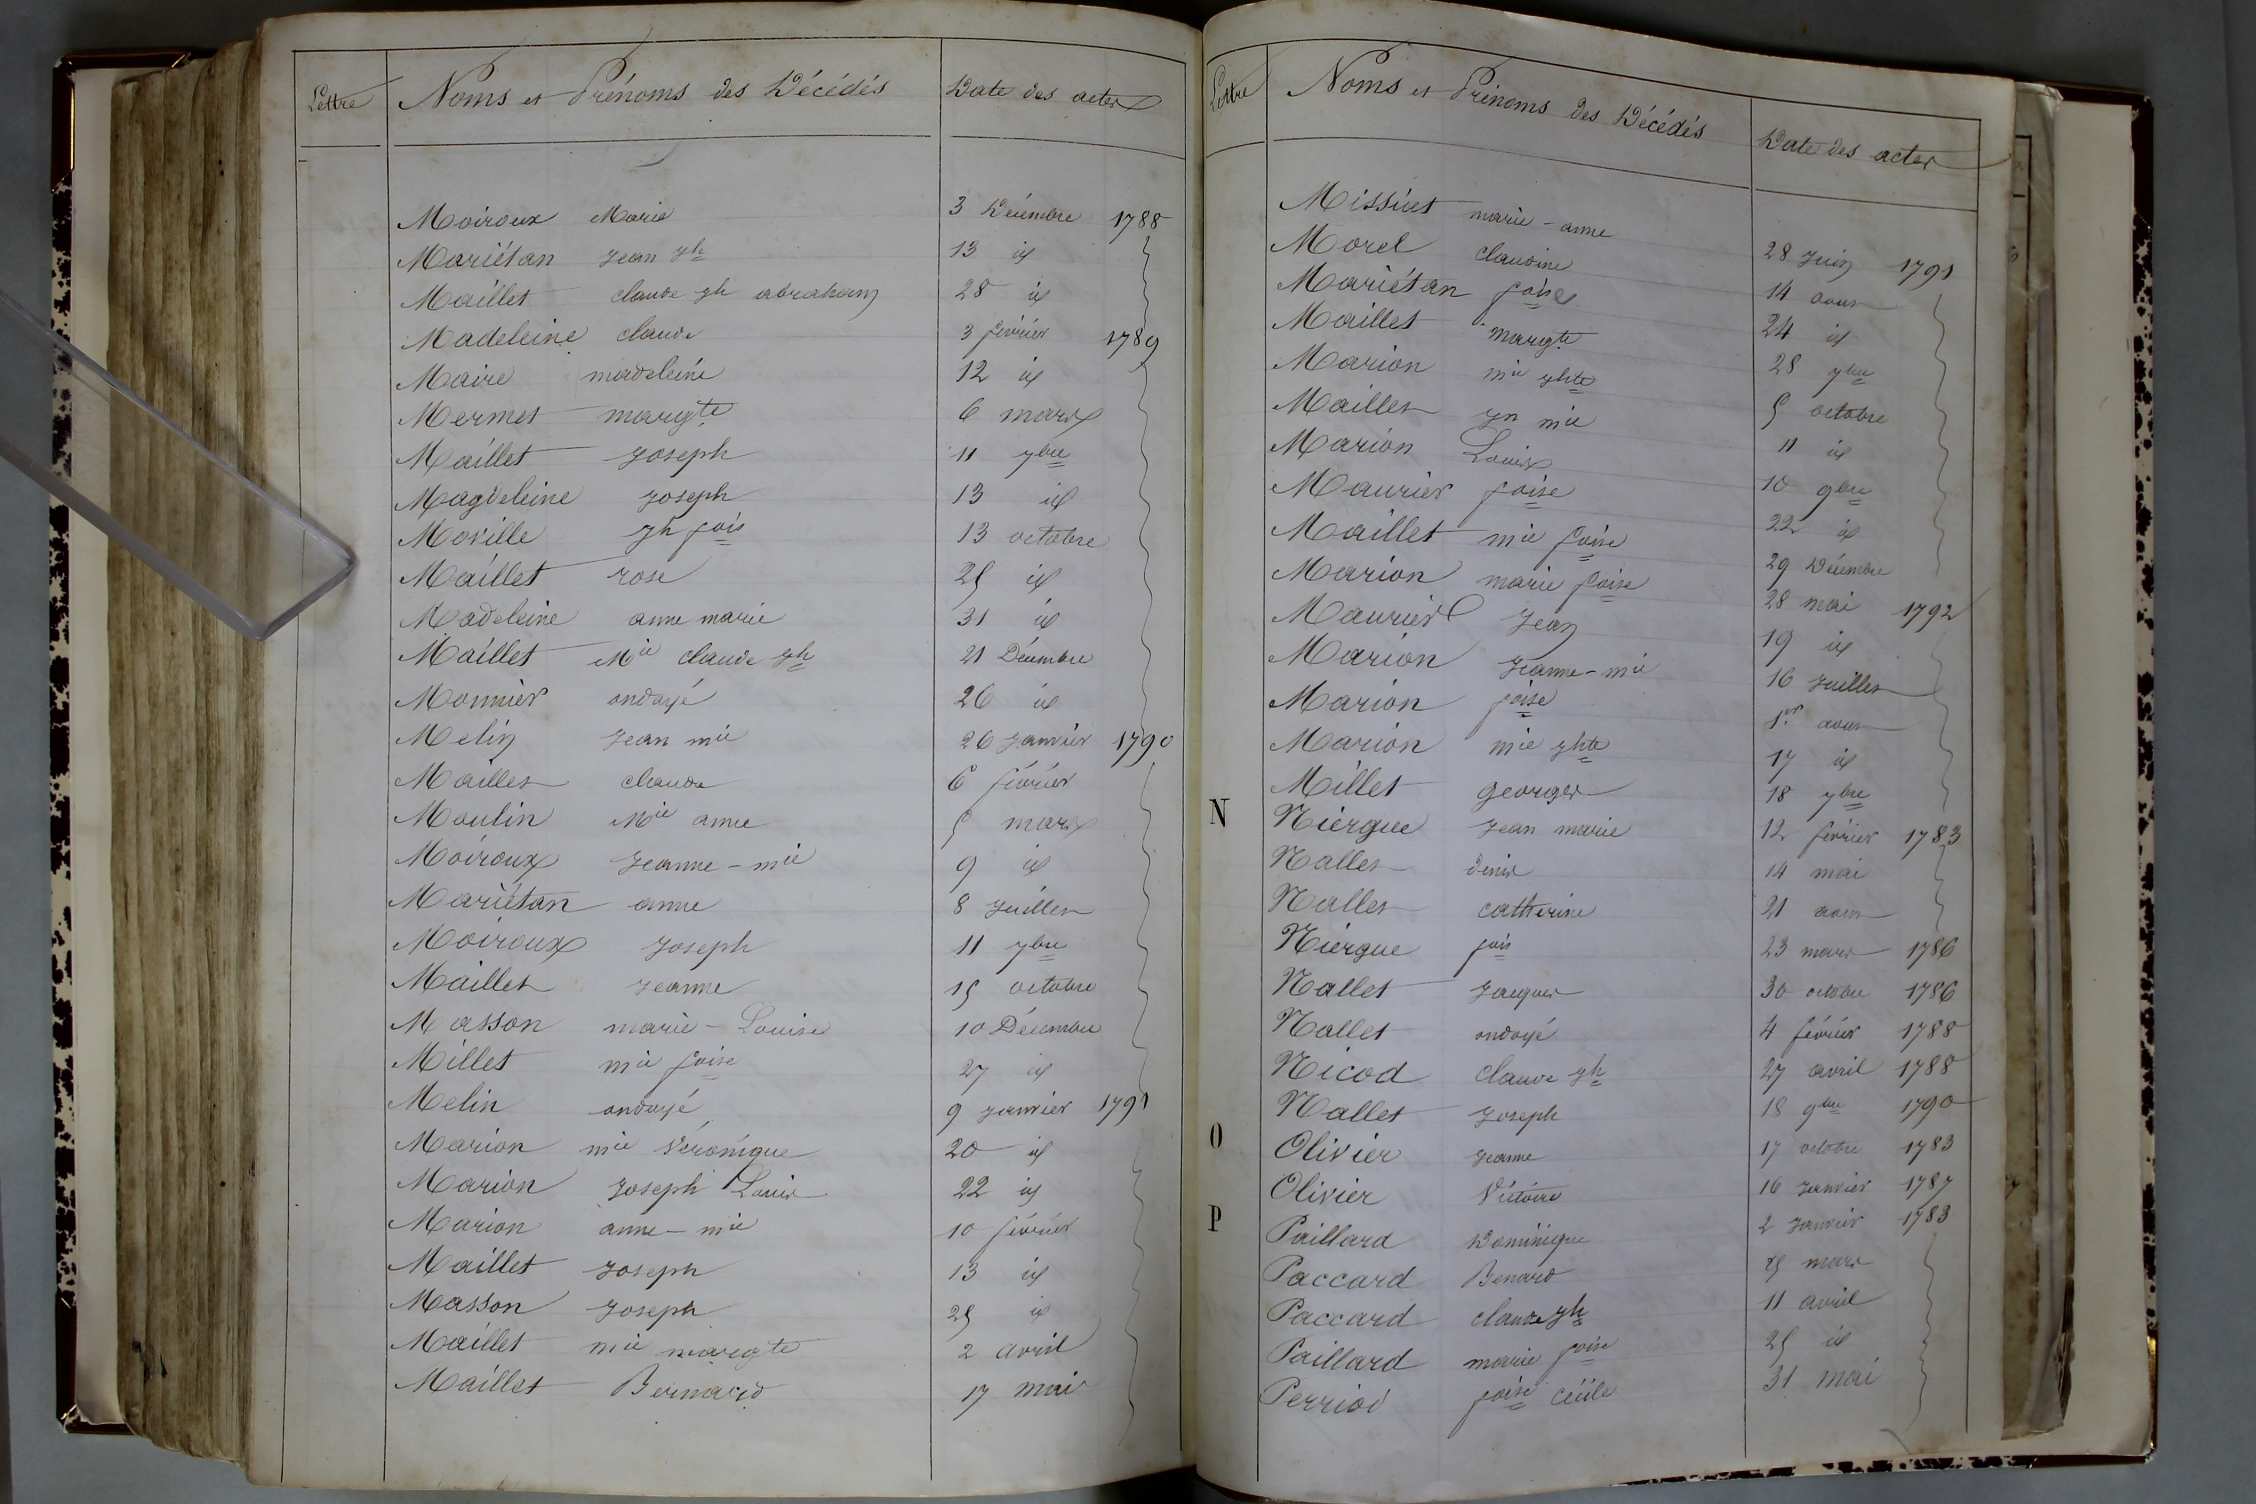 Lettre Noms et Prénoms des Décédés Date des actes
Moiroux Marie 3 Décembre 1788
Mariétan Jean Jh 13 id
Maillet claude Jh abraham 28 id
Madeleine claude 3 février 1789
Maire madeleine 12 id
Mermet margte 6 mars
Maillet Joseph 11 7bre
Magdeleine Joseph 13 id
Joseph Jh fois 13 octobre
Maillet rose 25 id
Madeleine anne marie 31 id
Maillet Mie claude Jh 21 Décembre
Monnier ondoyé 26 id
Melin Jean mie 26 Janvier 1790
Maillet claude 6 février
Moulin Mie anne 5 mars
Moiroux Jeanne-mie 9 id
Mariétan anne 8 Juillet
Moiroux Joseph 11 7bre
Maillet Jeanne 15 octobre
Masson marie-Louise 10 Décembre
Millet mie foise 27 id
Melin ondoyé 9 Janvier 1791
Marion mie Véronique 20 id
Marion Joseph Louis 22 id
Marion anne-mie 10 février
Maillet Joseph 13 id
Masson Joseph 25 id
Maillet mie margte 2 avril
Maillet Bernard 17 mai
Lettre Noms et Prénoms des Décédés Date des actes
marie-anne 28 Juin 1791
Morel claudine 14 aout
Mariétan foise 24 id
Maillet margte 28 7bre
Marion mie Jhte 5 octobre
Maillet Jn mie 11 id
Marion Louis 10 9bre
Maurier foise 22 id
Maillet mie foise 29 Décembre
Marion marie foise 28 mai 1792
Maurier Jean 19 id
Marion Jeanne-mie 16 Juillet
Marion foise 1er aout
Marion mie Jhte 17 id
Millet georges 18 7bre
N Niergue Jean marie 12 février 1783
Nallet denis 14 mai
Nallet catherine 21 aout
Niergue fois 23 mars 1786
Nallet Jacques 30 octobre 1786
Nallet ondoyé 4 février 1788
Nicod claude Jh 27 avril 1788
Nallet Joseph 18 9bre 1790
O Olivier Jeanne 17 octobre 1783
Olivier Victoire 16 Janvier 1787
P Paillard Dominique 2 Janvier 1783
Paccard Benard 25 mars
Paccard claude Jh 11 avril
Paillard marie foise 25 id
Perriod foise Cécile 31 mai